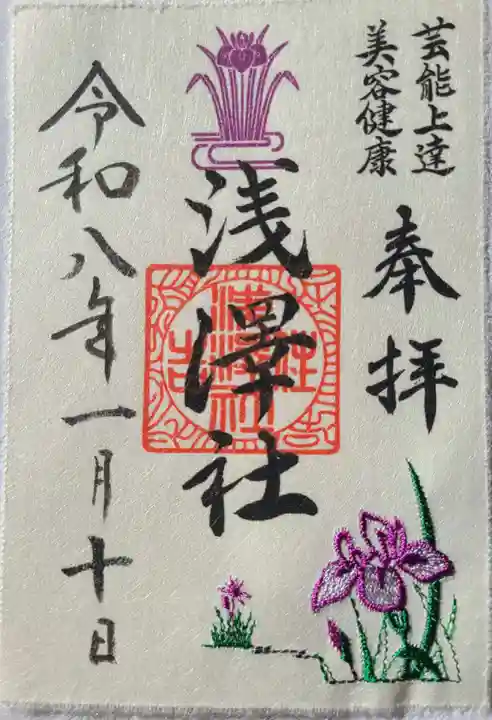 芸能上達
美容健康
奉拝
浅澤社
令和八年一月十日